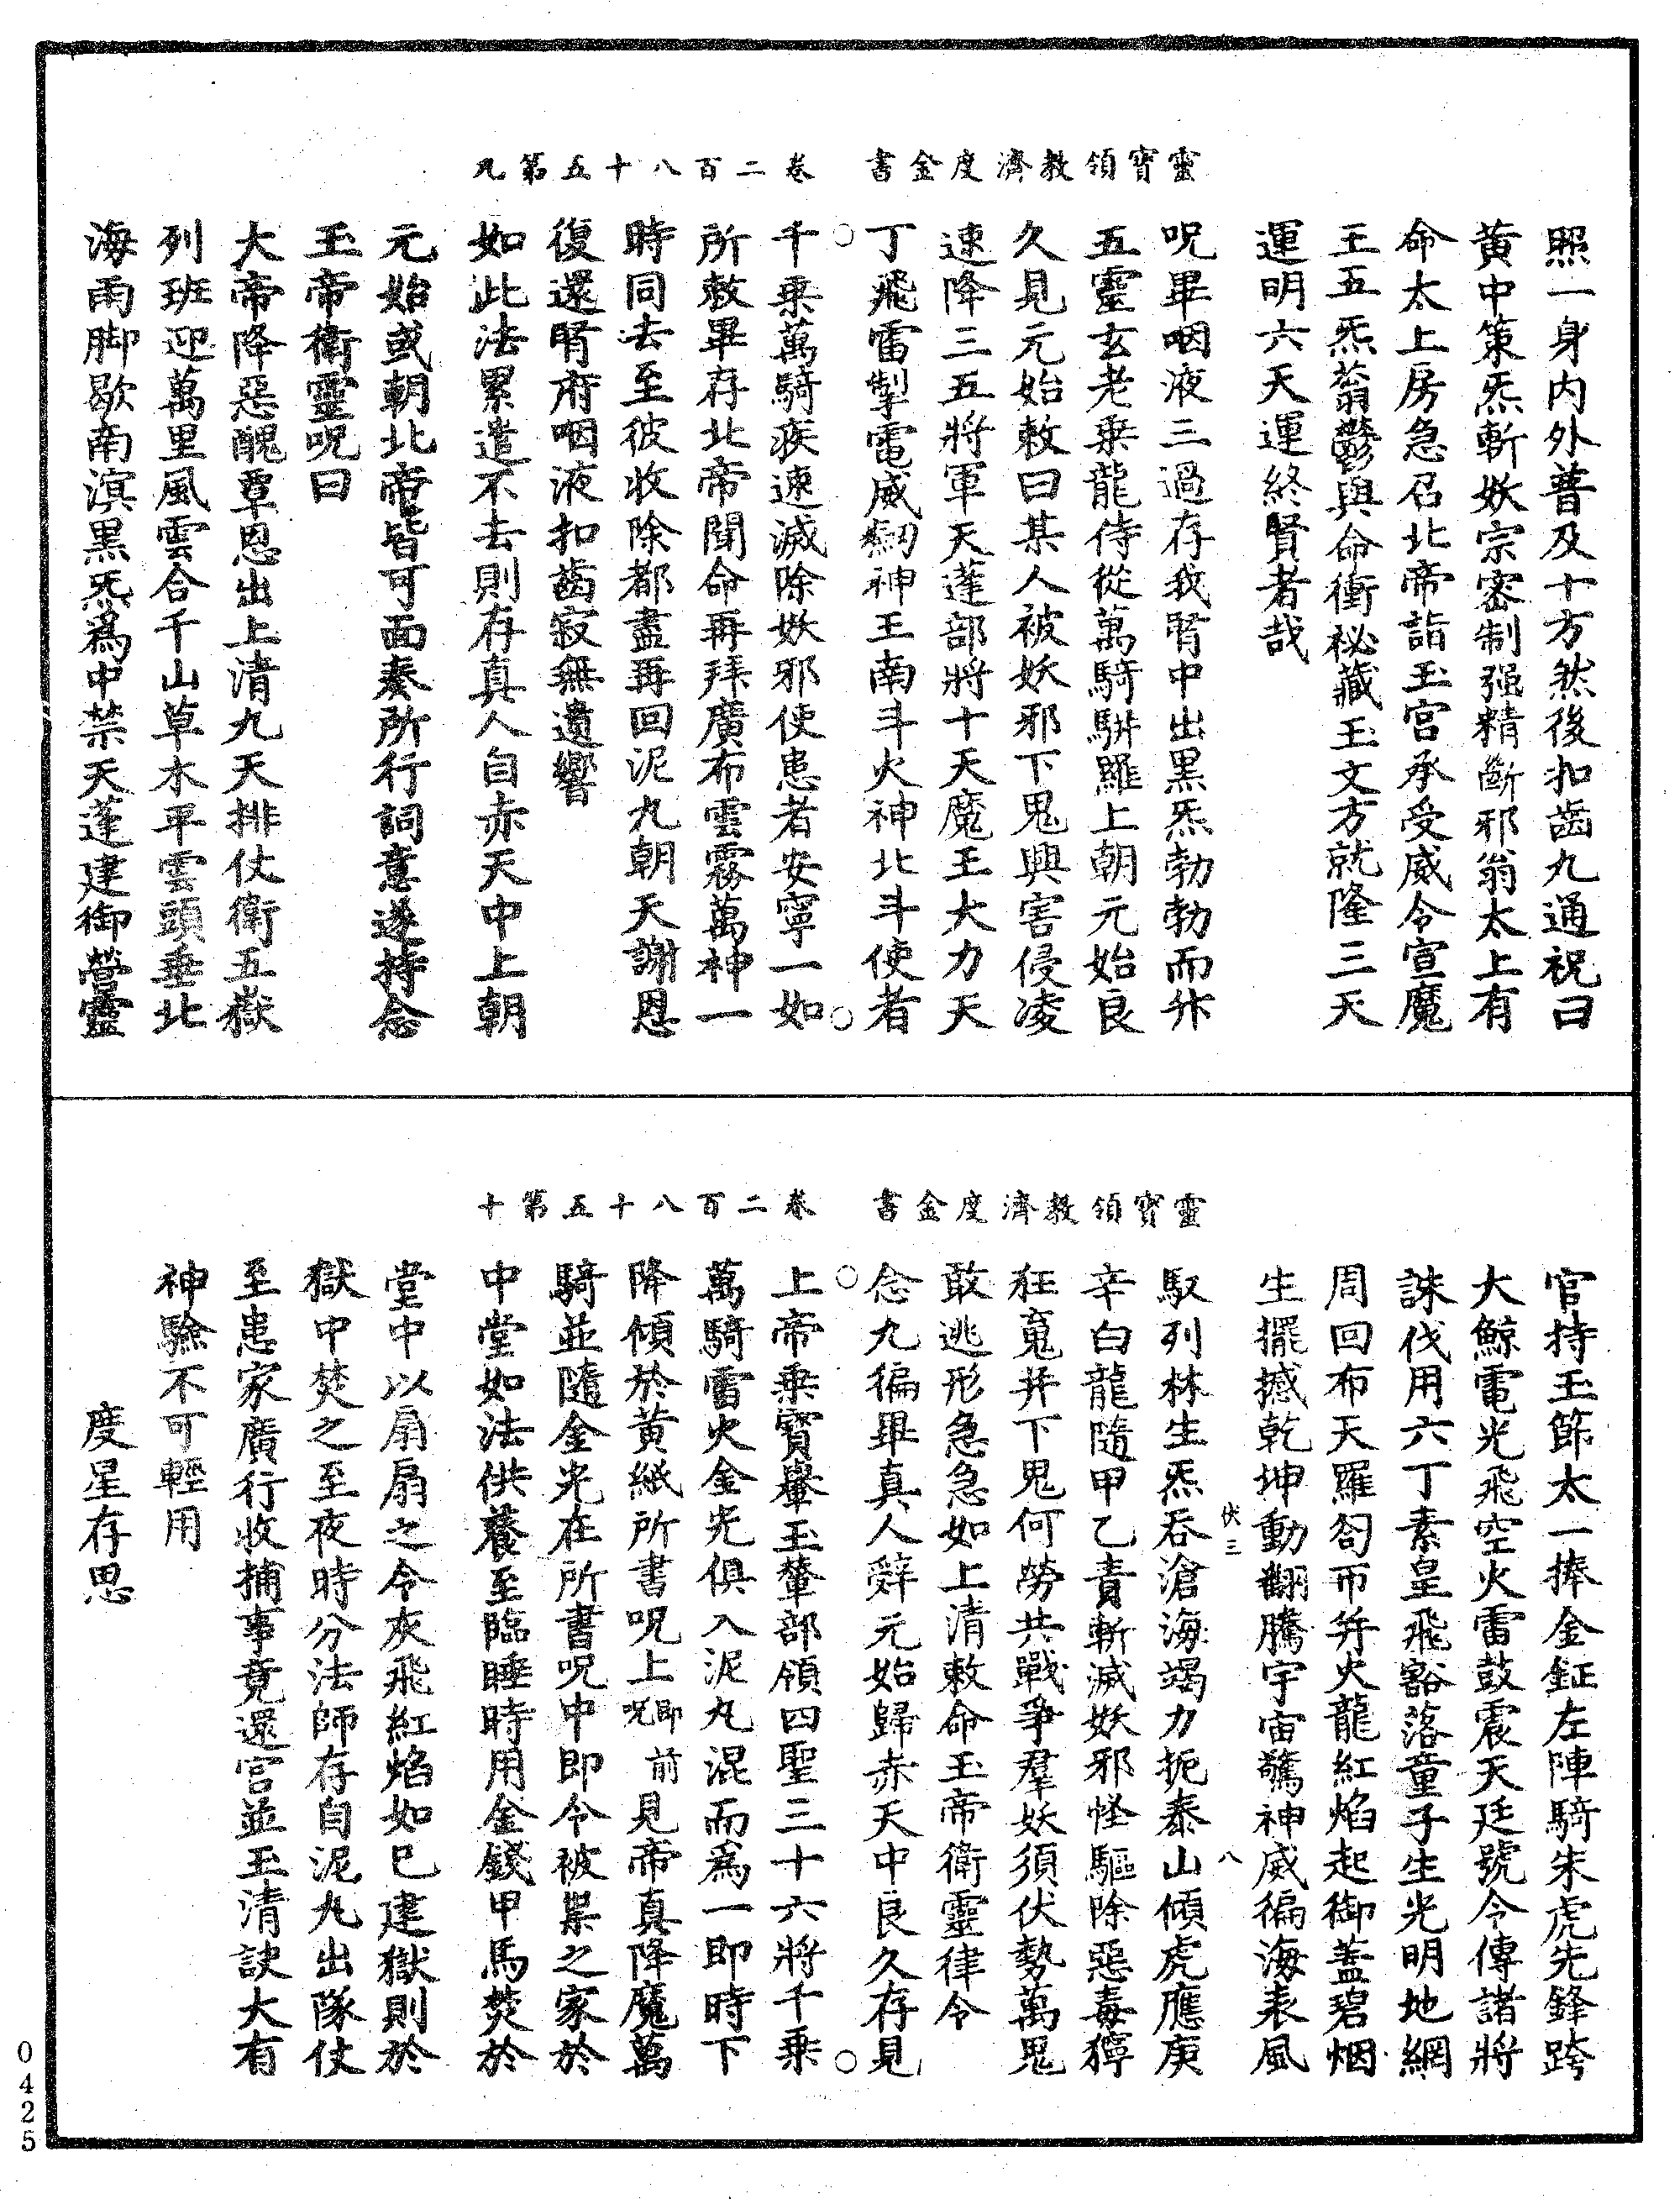 靈寶領教濟度金書　卷二百八十五第九
照一身内外普及十方然後扣齒九通祝曰
黄中策炁斬妖宗密制强精斷邪翁太上有
命太上房急召北帝詣玉宫承受威令宣魔
王五炁蓊鬱與命衝祕藏玉文方就隆三天
運明六天運終賢者哉
呪畢咽液三過存我腎中出黑炁勃勃而升
五靈玄老乗龍侍從萬騎駢羅上朝元始良
久見元始敕曰某人被妖邪下鬼興害侵凌
速降三五將軍天蓬部將十天魔王大力天
丁飛雷掣電威劒神王南斗火神北斗使者
千乗萬騎疾速滅除妖邪使患者安寧一如
所敕畢存北帝聞命再拜廣布雲霧萬神一
時同去至彼收除都盡再回泥丸朝天謝恩
復還腎府咽液扣齒寂無遺響
如此法累遣不去則存真人自赤天中上朝
元始或朝北帝皆可面奏所行詞意遂持念
玉帝衛靈呪曰
大帝降惡醜覃恩出上清九天排仗衛五嶽
列班迎萬里風雲合千山草木平雲頭垂北
海雨脚歇南溟黑炁爲中禁天蓬建御營靈
靈寶領教濟度金書　卷二百八十五第十
官持玉節太一捧金鉦左陣騎朱虎先鋒跨
大鯨電光飛空火雷鼓震天廷號令傳諸將
誅伐用六丁素皇飛豁落童子生光明地網
周回布天羅匌帀并火龍紅焰起御蓋碧烟
生擺撼乾坤動翻騰宇宙驚神威徧海表風
馭列林生炁吞滄海竭力扼泰山傾虎應庚
辛白龍隨甲乙責斬滅妖邪怪驅除惡毒獰
狂䰟并下鬼何勞共戰爭羣妖須伏勢萬鬼
敢逃形急急如上清敕命玉帝衛靈律令
念九徧畢真人辭元始歸赤天中良久存見
上帝乗寶轝玉輦部領四聖三十六將千乗
萬騎雷火金光俱入泥丸混而爲一即時下
降傾於黄紙所書呪上即前呪見帝真降魔萬
騎並隨金光在所書呪中即令被祟之家於
中堂如法供養至臨睡時用金錢甲馬焚於
堂中以扇扇之令灰飛紅焰如巳建獄則於
獄中焚之至夜時分法師存自泥丸出隊仗
至患家廣行收捕事竟還宫並玉清訣大有
神驗不可輕用
度星存思
伏三　八
0425